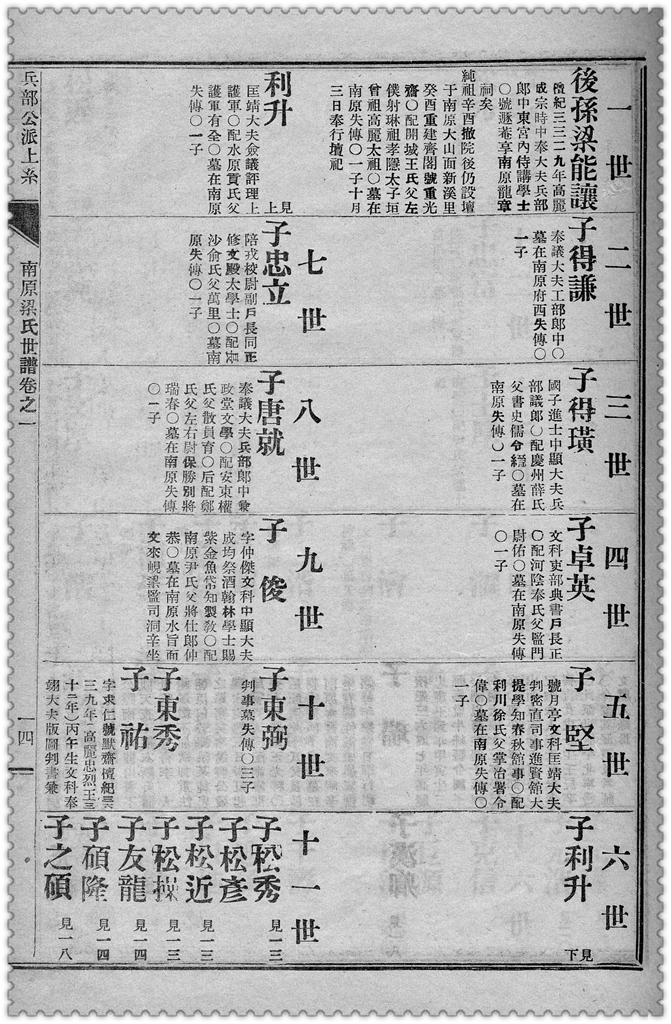 一世
後孫梁能讓
檀紀三三二九年高麗
成宗時中奉大夫兵部
郎中東宮內侍講學士
○號遯菴享南原龍章
祠矣
純祖辛酉撤院後仍設壇
于南原大山面新溪里
癸酉重建齋閣號重光
齋○配開城王氏父左
僕射琳祖孝隱太子垣
曾祖高麗太祖○墓在
南原失傳○一子十月
三日奉行壇祀
二世
子得謙
奉議大夫工部郎中○
墓在南原府西失傳○
一子
三世
子得璜
國子進士中顯大夫兵
部議郎○配慶州薛氏
父書史儒令○墓在
南原失傳○一子
四世
子卓英
文科吏部典書戶長正
○配河陰奉氏父監門
尉佑○墓在南原失傳
○一子
五世
子堅
號月亭文科匡靖大夫
判密直司事進賢舘大
提學知春秋舘事○配
利川徐氏父掌冶署令
偉○墓在南原失傳○
一子
六世
子利升
見下
利升
見上
匡靖大夫僉議評理上
護軍○配水原貢氏父
護軍有全○墓在南原
失傳○一子
七世
子忠立
陪戎校尉副戶長同正
修文殿太學士○配
沙俞氏父萬里○墓南
原失傳○一子
八世
子唐就
奉議大夫兵部郎中兼
政堂文學○配安東權
氏父散員育○后配鄭
氏父左右尉保勝別將
瑞春○墓在南原失傳
○一子
九世
子俊
字仲傑文科中顯大夫
成均祭酒翰林學士賜
紫金魚帒知製敎○配
南原尹氏父將仕郎仲
恭○墓在南原水旨面
文來峴梁監司洞辛坐
十世
子東弼
判事墓失傳○三子
子東秀
子祐
字求仁號默齋檀紀三
三九年(高麗忠烈王三
十二年)丙午生文科奉
翊大夫版圖判書兼
十一世
子松秀 見一三
子松彥
子松近 見一三
子松操 見一三
子友龍 見一四
子碩隆 見一四
子之碩 見一八
兵部公派上系
南原梁氏世譜卷之一
一四